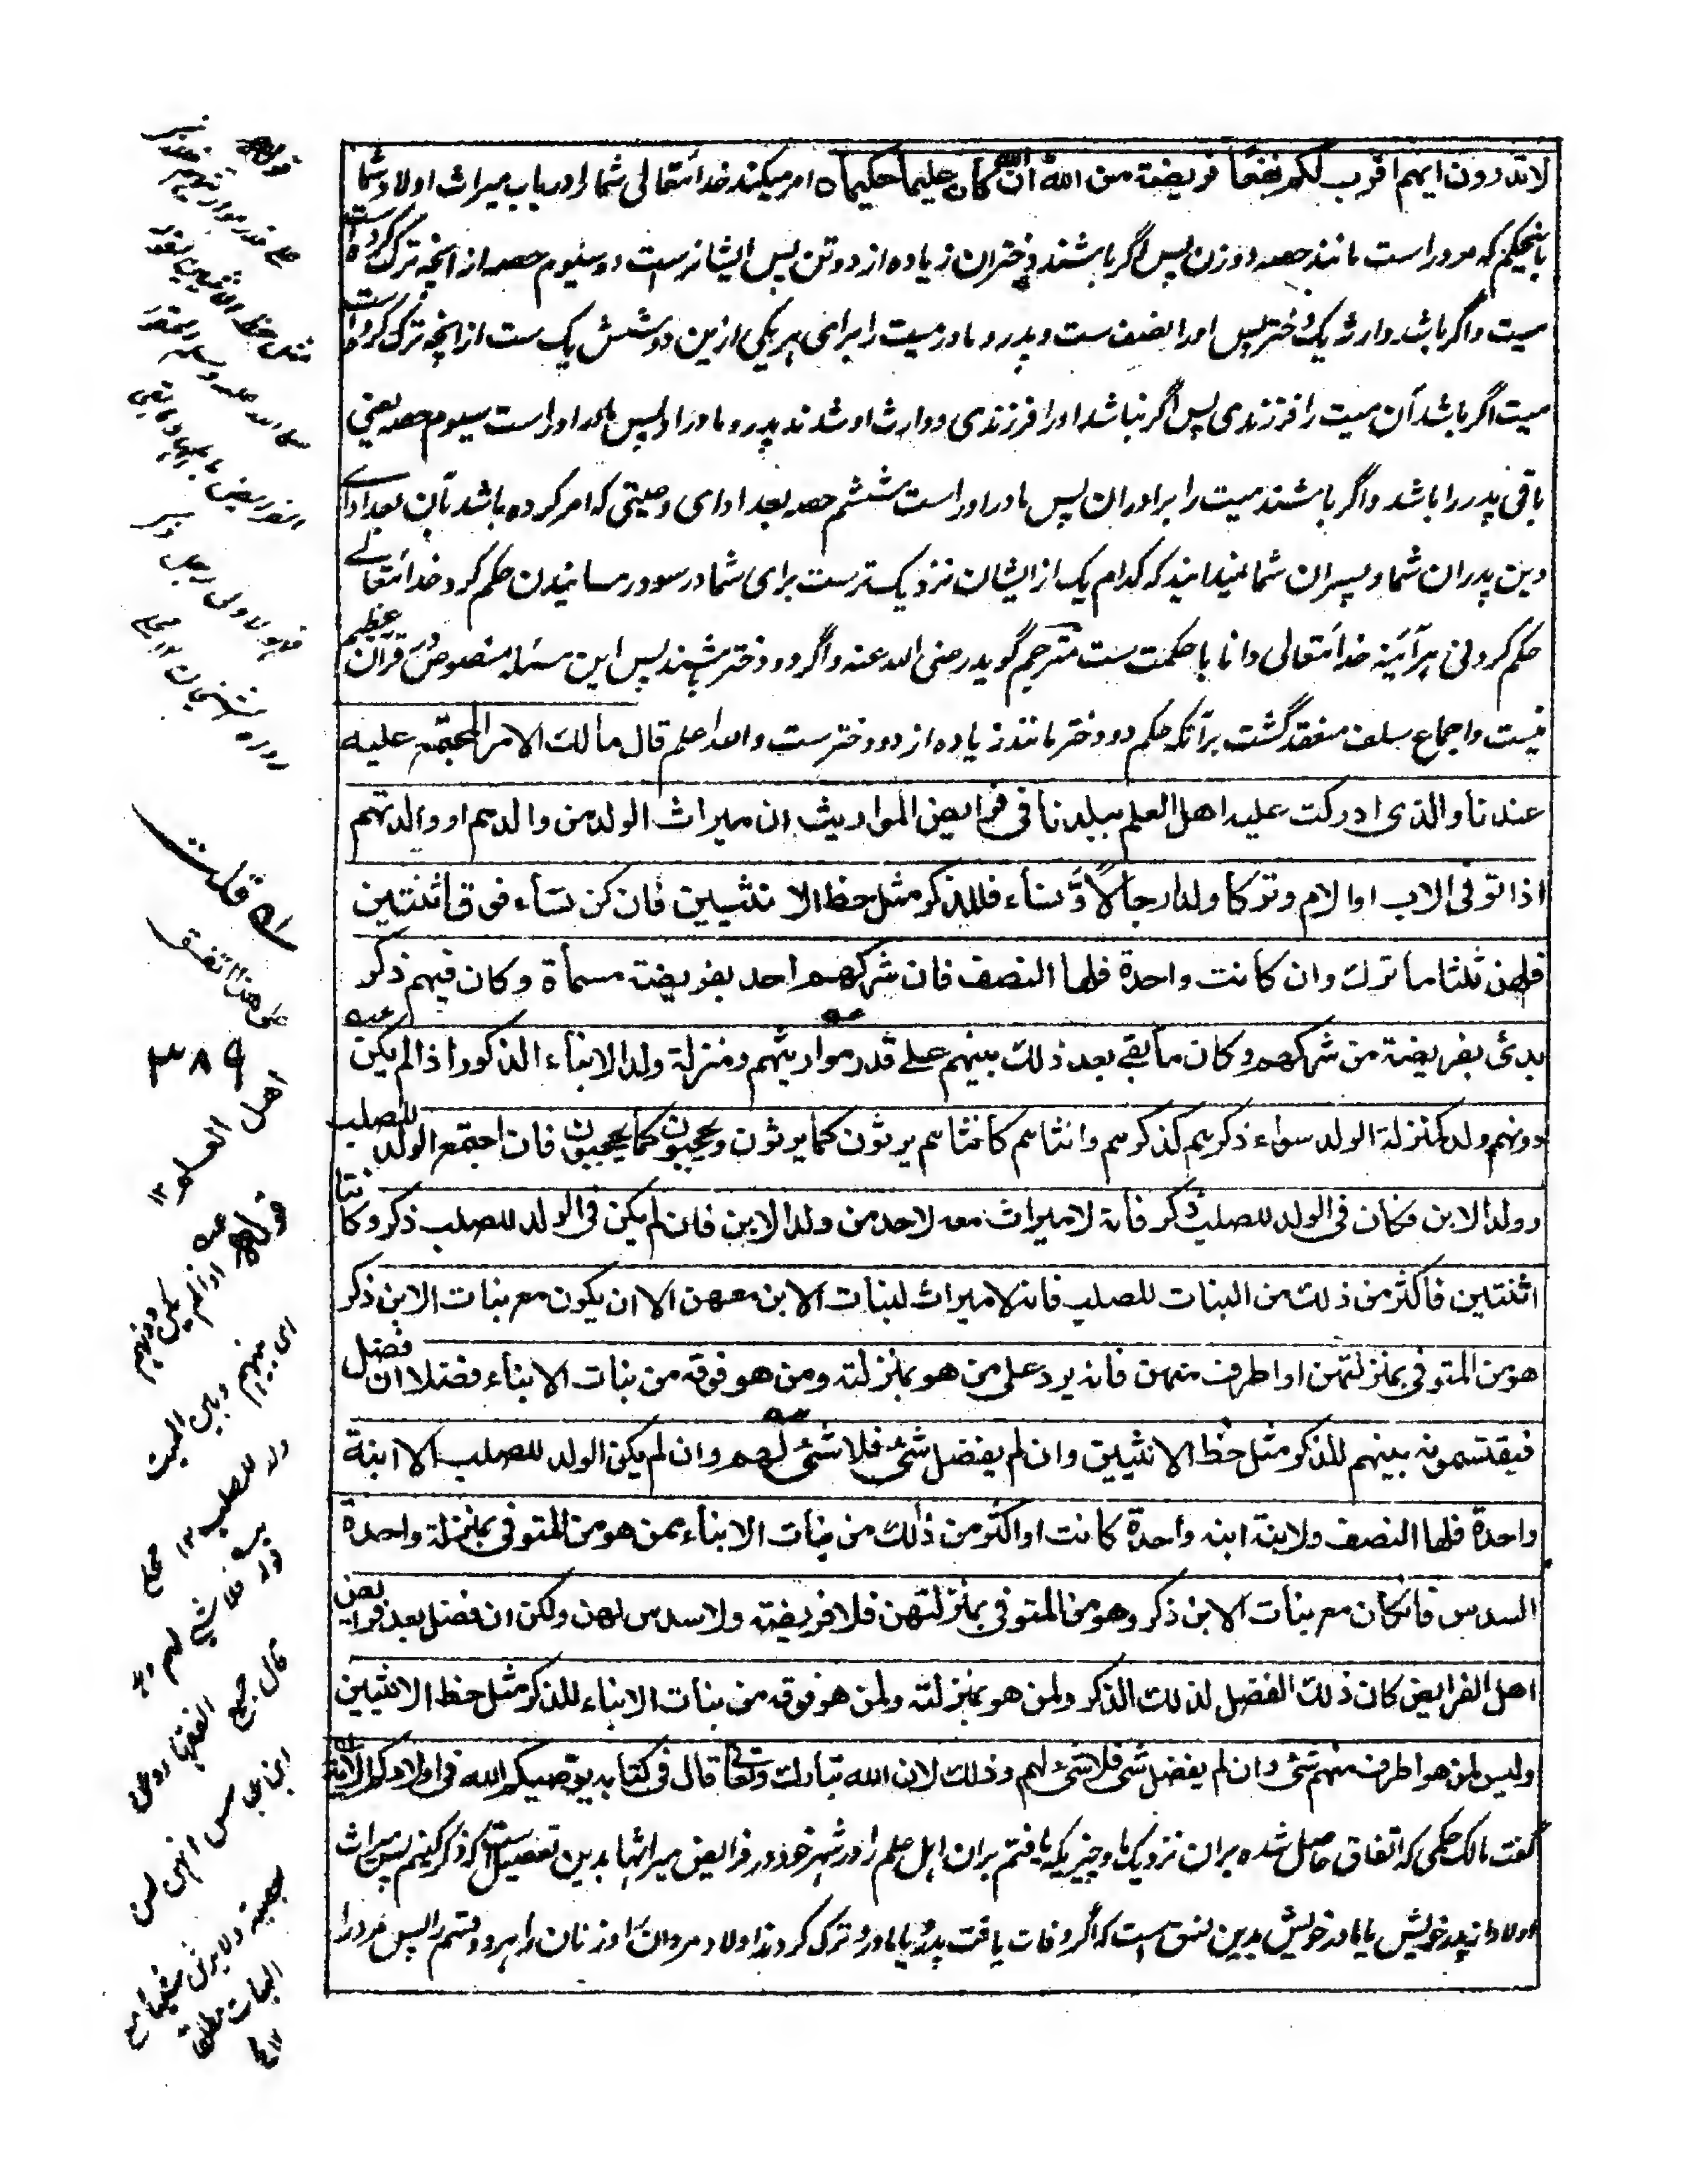 لا تدرون ایهم اقرب لکم نفعًا فریضة من الله ان الله کان علیما حکیما ه امر میکند خدا تعالی شما را در باب میراث اولاد شما
باینحکم که مرد راست مانند حصه دو زن پس اگر باشند دختران زیاده از دو تن پس ایشانراست دو سیوم حصه از آنچه ترک کرده است
میت و اگر باشد وارث یک دختر پس او را نصف ست و پدر و مادر میت را برای هر یکی ازین دو شش یک ست از آنچه ترک کرده است
میت اگر باشد آن میت را فرزندی پس اگر نباشد او را فرزندی و وارث او شدند پدر و مادر او پس مادر او راست سیوم حصه یعنی
باقی پدر را باشد و اگر باشند میت را برادران پس مادر او راست ششم حصه بعد ادای وصیتی که امر کرده باشد بآن بعد ادای
دین پدران شما و پسران شما نمیدانید که کدام یک از ایشان نزدیک ترست برای شما در سود رسانیدن حکم کرد خدا تعالے
حکم کردنی هر آئینه خدا تعالی دانا با حکمت ست مترجم گوید رضی الله عنه و اگر دو دختر باشند پس این مسئله منصوص قرآن عظیم
نیست و اجماع سلف منعقد گشت بر آنکه حکم دو دختر مانند زیاده از دو دختر ست والله اعلم قال مالك الامر المجتمع علیه
عندنا والذی ادرکت علیه اهل العلم ببلدنا فی فرایض المواریث ان میراث الولد من والدهم او والدتهم
اذا توفی الاب او الام وترکا ولدا رجالاً وَّنساء فللذکر مثل حظ الانثیین فان کن نساء فوق اثنتین
فلهن ثلثا ما ترك وان کانت واحدة فلها النصف فان شرکهم احد بفریضة مسماة وکان فیهم ذکر
بدئ بفریضة من شرکهم وکان ما بقے بعد ذلك بینهم علے قدر مواریثهم ومنزلة ولد الابناء الذکور اذا لم یکن
دونهم ولد کمنزلة الولد سواء ذکرهم کذکرهم وانثاهم کانثاهم یرثون کما یرثون ویحجبون کما یحجبون فان اجتمع الولد للصلب
وولد الابن فکان فی الولد للصلب ذکر فانه لا میراث معه لاحد من ولد الابن فان لم یکن فی الولد للصلب ذکر وکانتا
اثنتین فاکثر من ذلك من البنات للصلب فانه لا میراث لبنات الابن معهن الا ان یکون مع بنات الابن ذکر
هو من المتوفی بمنزلتهن او اطرف منهن فانه یرد علی من هو بمنزلته ومن هو فوقه من بنات الابناء فضلا ان فضل
فیقتسمونه بینهم للذکر مثل حظ الانثیین وان لم یفضل شئ فلا شئ لهم وان لم یکن الولد للصلب الا ابنة
واحدة فلها النصف ولابنة ابنه واحدة کانت او اکثر من ذلك من بنات الابناء ممن هو من المتوفی بمنزلة واحدة
السدس فان کان مع بنات الابن ذکر وهو من المتوفی بمنزلتهن فلا فریضة ولا سدس لهن ولکن ان فضل بعد فرایض
اهل الفرایض کان ذلك الفضل لذلك الذکر ولمن هو بمنزلته ولمن هو فوقه من بنات الابناء للذکر مثل حظ الانثیین
ولیس لمن هو اطرف منهم شئ وان لم یفضل شئ فلا شئ لهم وذلك لان الله تبارك وتعالی قال فی کتابه یوصیکم الله فی اولادکم الایة
گفت مالک حکمی که اتفاق حاصل شده بران نزدیک ما و چیزیکه یافتم بران اهل علم را در شهر خود در فرایض میراثها بدین تفصیل ست که ذکر کنیم پس میراث
اولاد از پدر خویش یا مادر خویش بدین نسق ست که اگر وفات یافت پدر یا مادر و ترک کردند اولاد مردان و زنان را هر دو قسم را پس مرد را
قلت
على هذا اتفق
٣٨٩
اهل العلم ١٢
قوله اذا لم یکن دونهم
ای بینهم وبین المیت
ولد للصلب ١٢ محلی
قوله فلا شئ لهم
قال جمیع الفقهاء وعن
ابن عباس انهن لسن
بعصبة ولا یرثن شیئا مع
البنات مطلقا
١٢ محلی